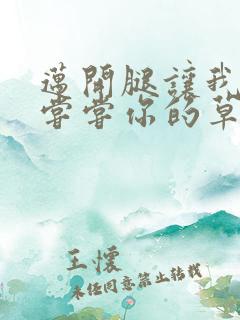 邁開腿讓我
嘗嘗你的草
王懷
未經同意禁止轉載